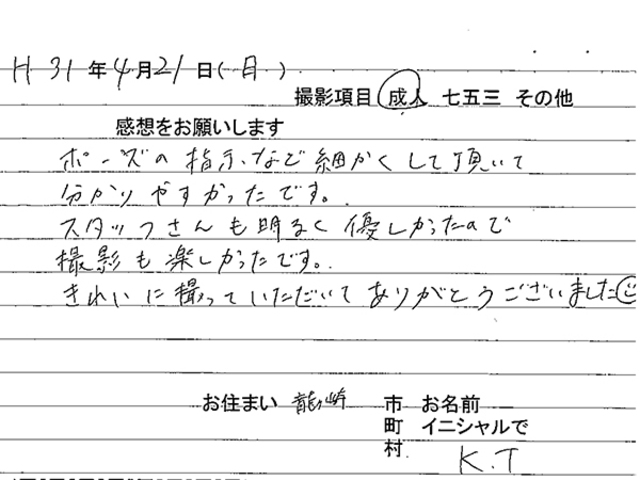 H 31年4月21日(日)
撮影項目 成人 七五三 その他
感想をお願いします
ポーズの指示など細かくして頂いて
分かりやすかったです。
スタッフさんも明るく優しかったので
撮影も楽しかったです。
きれいに撮っていただいてありがとうございました☺
お住まい 龍ヶ崎 市 お名前
町 イニシャルで
村 K.T